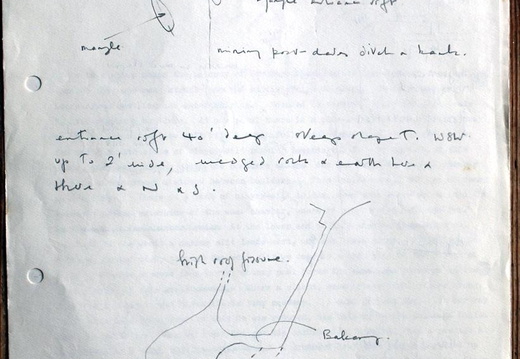 entrance rift
mining post-dates ditch & bank.
entrance rift 40' deep steep slope T. WSW.
up to 2' wide, wedged rocks & earth here &
there & N & S.
high roof fissure.
Balcony.